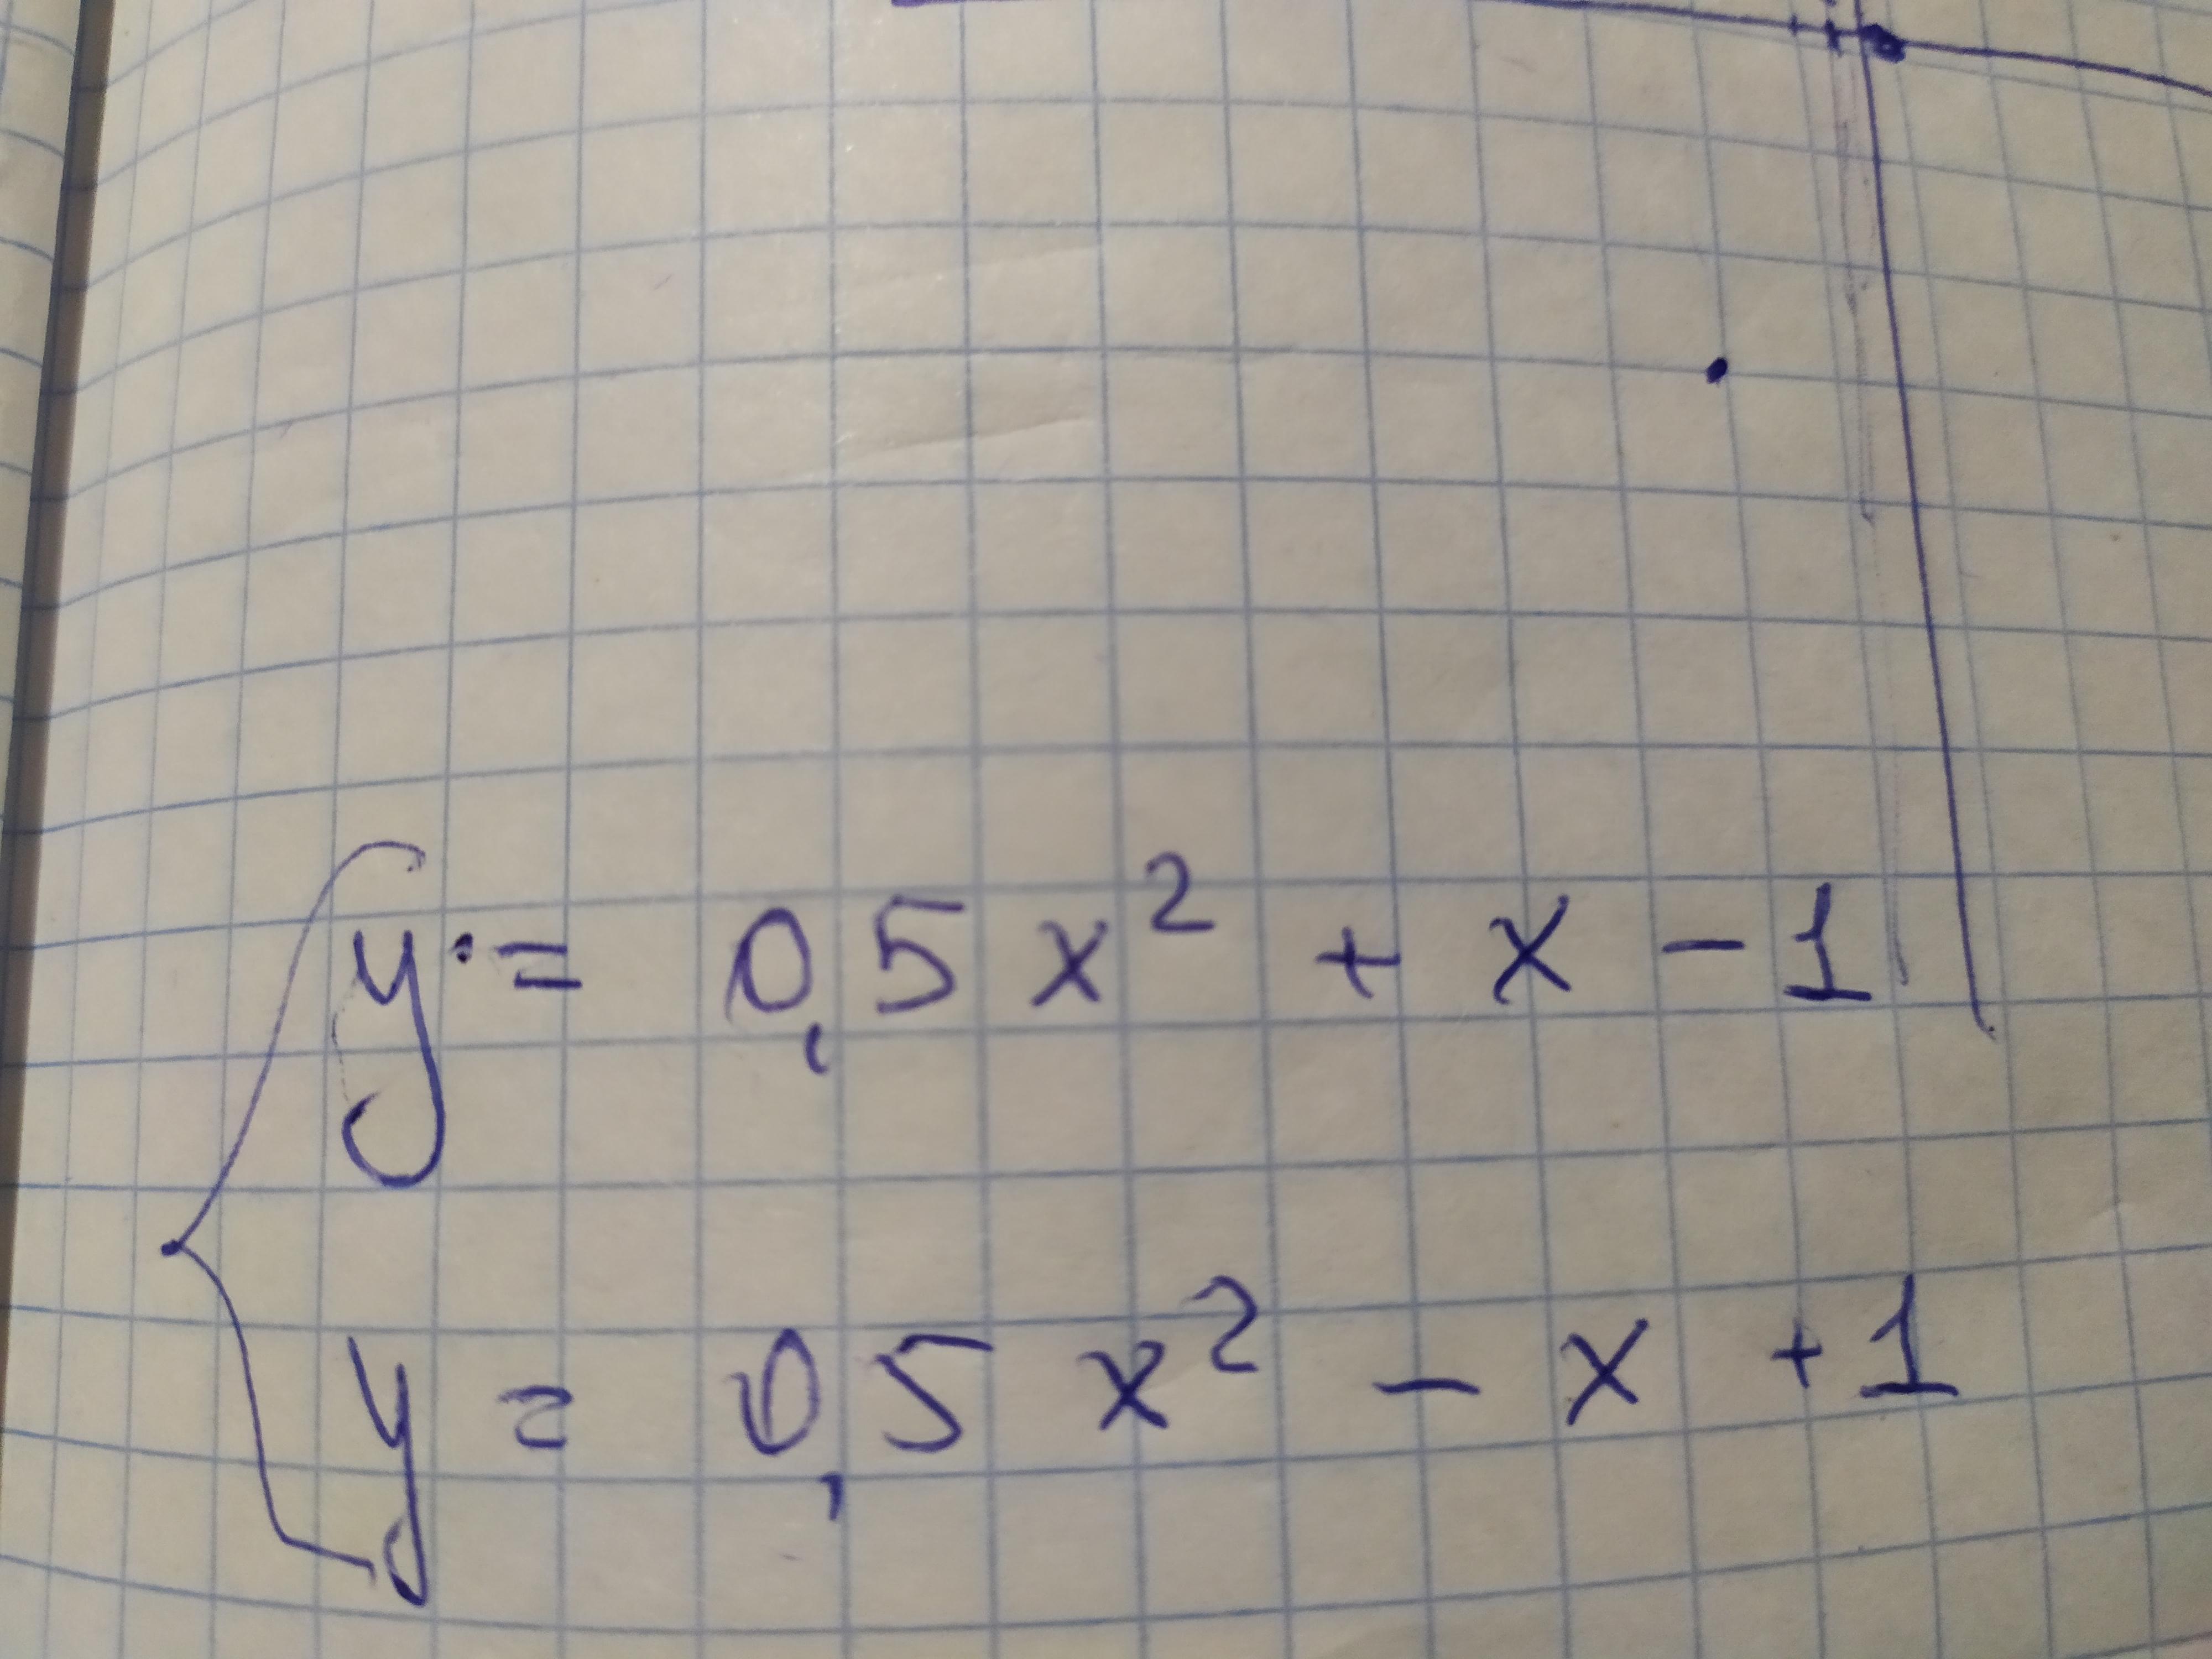 y = 0,5x² + x - 1
y = 0,5x² - x + 1